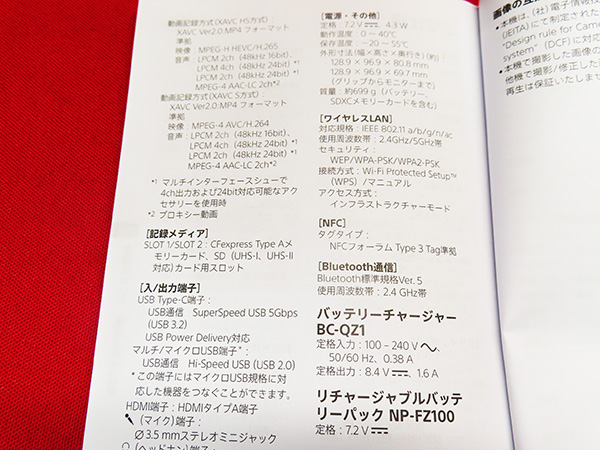 動画記録方式(XAVC HS方式)
XAVC Ver2.0:MP4 フォーマット
準拠
映像 MPEG-H HEVC/H.265
音声:LPCM 2ch (48kHz 16bit)、
LPCM 2ch (48kHz 24bit)*1
LPCM 4ch (48kHz 24bit)*1
MPEG-4 AAC-LC 2ch*2
動画記録方式(XAVC S方式):
XAVC Ver2.0:MP4 フォーマット
準拠
映像 MPEG-4 AVC/H.264
音声:LPCM 2ch (48kHz 16bit)、
LPCM 4ch (48kHz 24bit)*1
LPCM 2ch (48kHz 24bit)*1
MPEG-4 AAC-LC 2ch*2
*1 マルチインターフェースシューで
4ch出力および24bit対応可能なアク
セサリーを使用時
*2 プロキシー動画
[記録メディア]
SLOT 1/SLOT 2:CFexpress Type Aメ
モリーカード、SD (UHS-I、UHS-II
対応)カード用スロット
[入/出力端子]
USB Type-C端子:
USB通信 SuperSpeed USB 5Gbps
(USB 3.2)
USB Power Delivery対応
マルチ/マイクロUSB端子*:
USB通信 Hi-Speed USB (USB 2.0)
*この端子にはマイクロUSB規格に対
応した機器をつなぐことができます。
HDMI端子:HDMIタイプA端子
(マイク)端子:
Ø 3.5 mmステレオミニジャック
(ヘッドホン)端子:
[電源・その他]
定格:7.2 V⎓、4.3 W
動作温度:0~40℃
保存温度:−20~55℃
外形寸法(幅×高さ×奥行き)(約)
128.9 × 96.9 × 80.8 mm
128.9 × 96.9 × 69.7 mm
(グリップからモニターまで)
質量:約699 g (バッテリー、
SDXCメモリーカードを含む)
[ワイヤレスLAN]
対応規格:IEEE 802.11 a/b/g/n/ac
使用周波数帯:2.4GHz/5GHz帯
セキュリティ:
WEP/WPA-PSK/WPA2-PSK
接続方式:Wi-Fi Protected Setup™
(WPS) /マニュアル
アクセス方式:
インフラストラクチャーモード
[NFC]
タグタイプ:
NFCフォーラム Type 3 Tag準拠
[Bluetooth通信]
Bluetooth標準規格Ver. 5
使用周波数帯:2.4 GHz帯
バッテリーチャージャー
BC-QZ1
定格入力:100 – 240 V〜、
50/60 Hz、0.38 A
定格出力:8.4 V⎓、1.6 A
リチャージャブルバッテ
リーパック NP-FZ100
定格:7.2 V⎓
画像の互
• 本機は、(社)電子情報技
(JEITA)にて制定された
"Design rule for Cam
system" (DCF)に対応
• 本機で撮影した画像の
他機で撮影/修正した画
再生は保証いたしませ